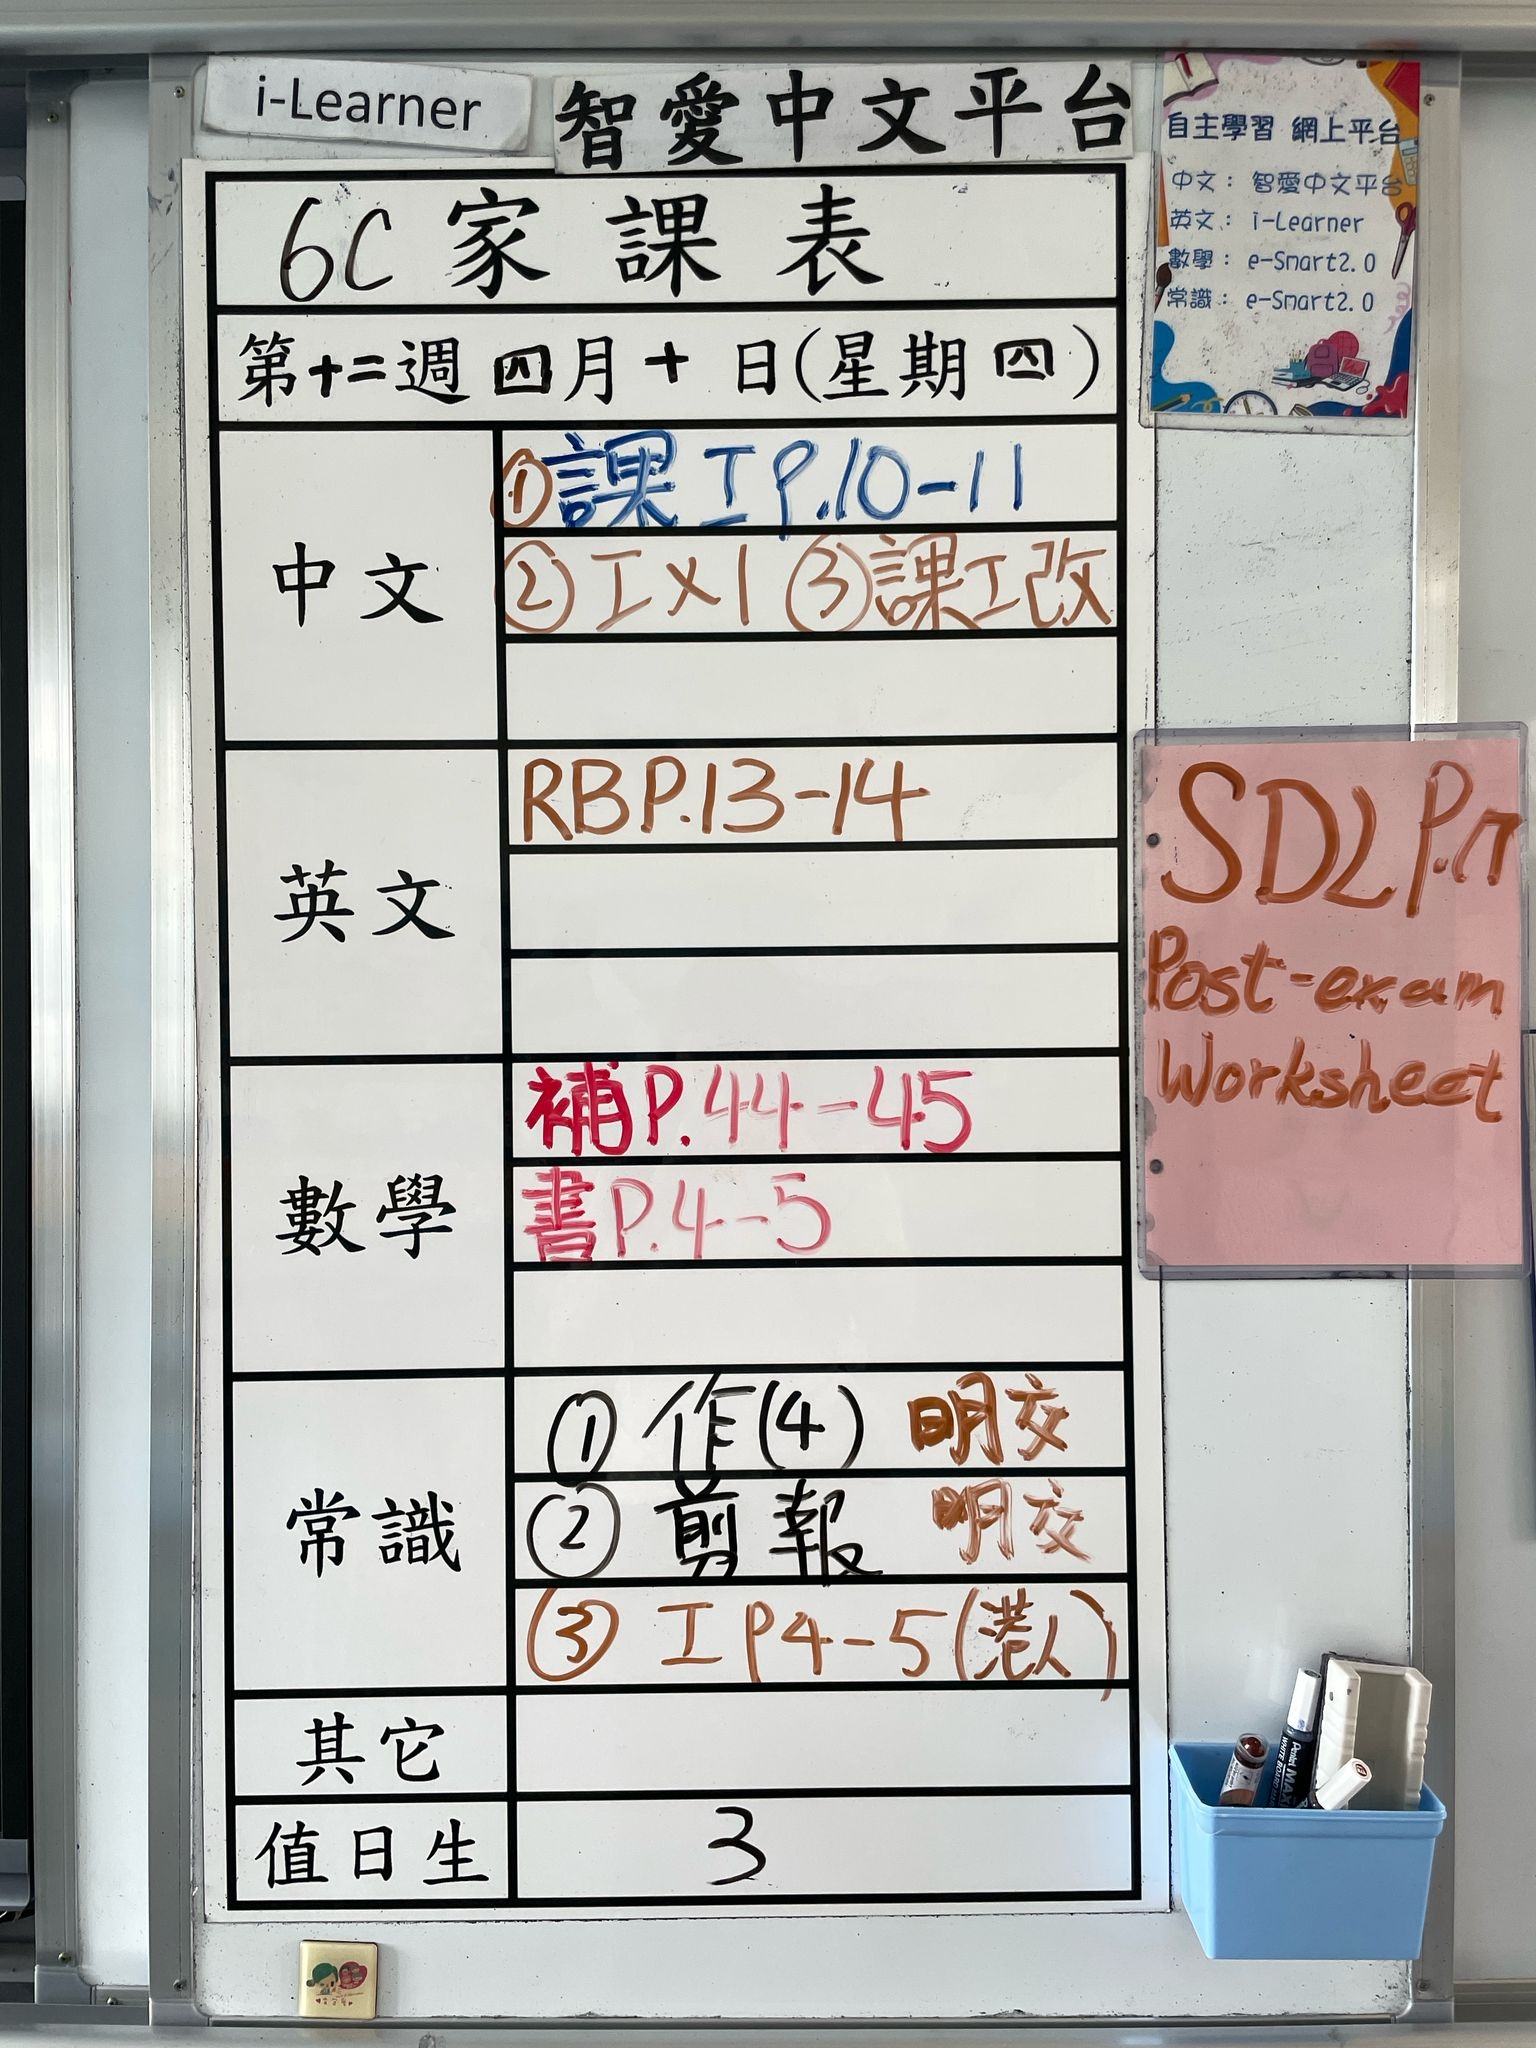 i-Learner 智愛中文平台
自主學習 網上平台
中文： 智愛中文平台
英文： i-Learner
數學： e-Smart2.0
常識： e-Smart2.0
6C 家課表
第十二週 四月十日(星期四)
中文
①課工P.10-11
②工×1 ③課工改
英文
RBP.13-14
數學
補P.44-45
書P.4-5
常識
① 作(4) 明交
② 剪報 明交
③ 工P4-5(港人)
其它
值日生 3
SDL
Post-exam
Worksheet